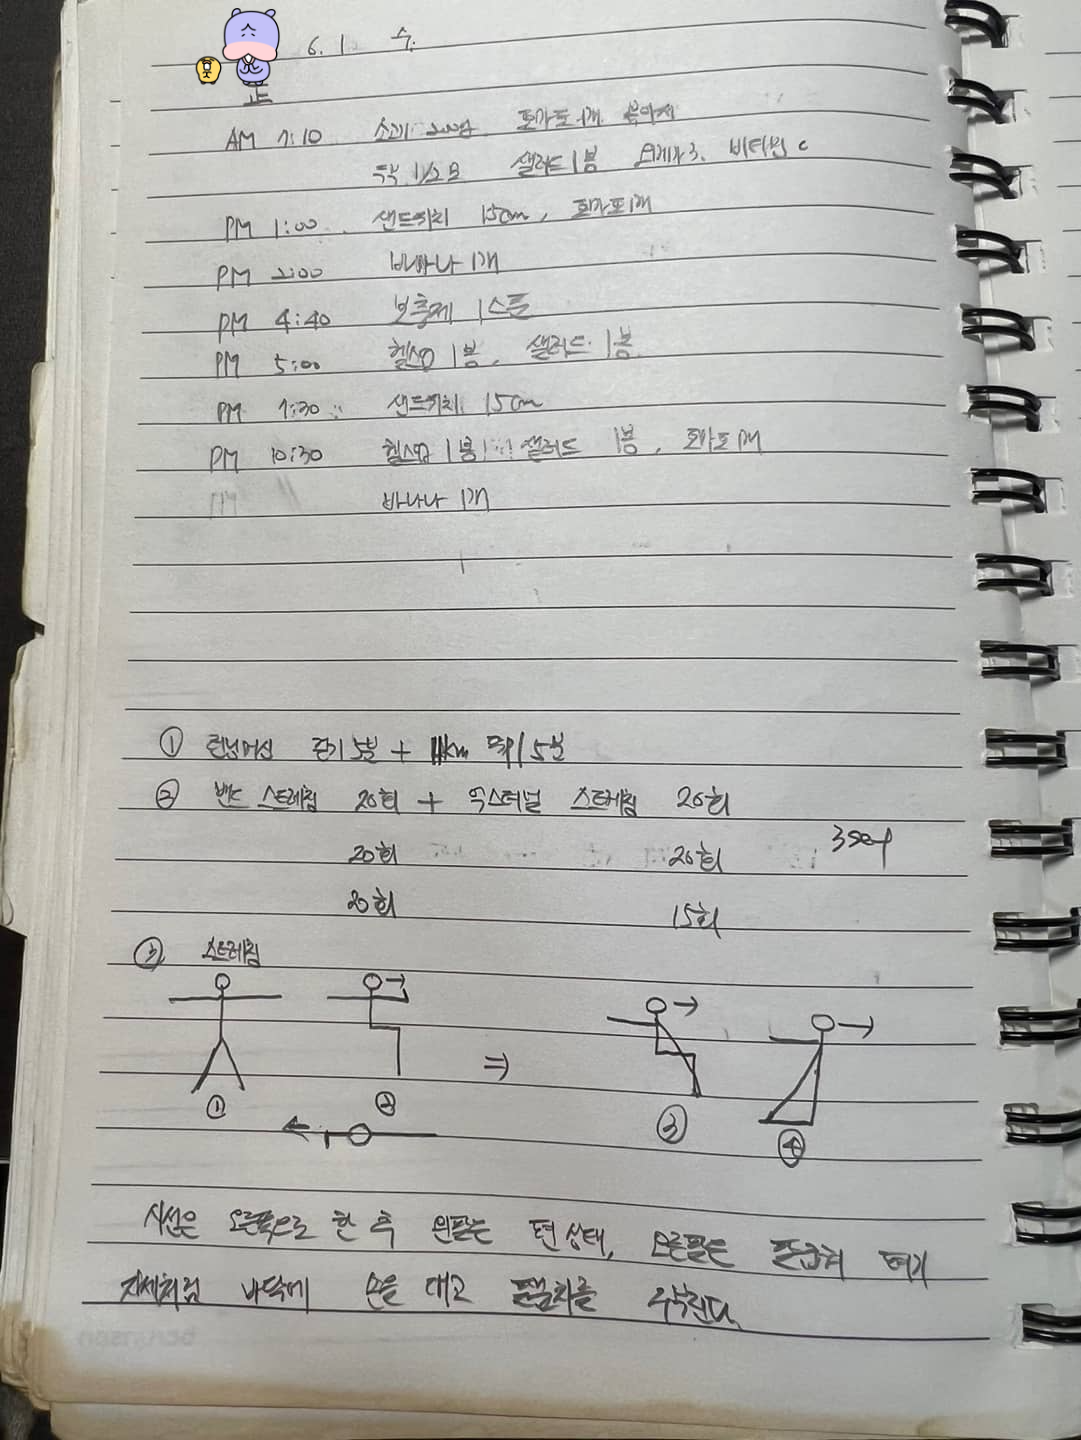 6. 1 수
AM 7:10 소고기 200g 토마토 1개
떡 1/2 샐러드 1봉 비타민 c
PM 1:00 샌드위치 15cm, 토마토 1개
PM 2:00 바나나 1개
PM 4:40 보충제 1스푼
PM 5:00 헬스밀 1봉, 샐러드 1봉
PM 7:30 샌드위치 15cm
PM 10:30 헬스밀 1봉 샐러드 1봉, 토마토 1개
바나나 1개
① 런닝머신 걷기 5분 + km 뛰기 5분
② 밴드 스트레칭 20회 + 익스터널 스트레칭 20회
20회 20회 3set
20회 15회
③ 스트레칭
① ② ⇒ ③ ④
시선은 오른쪽으로 한 후 왼팔는 편 상태, 오른팔는 팔굽혀 펴기
자세처럼 바닥에 손을 대고 유지한다.